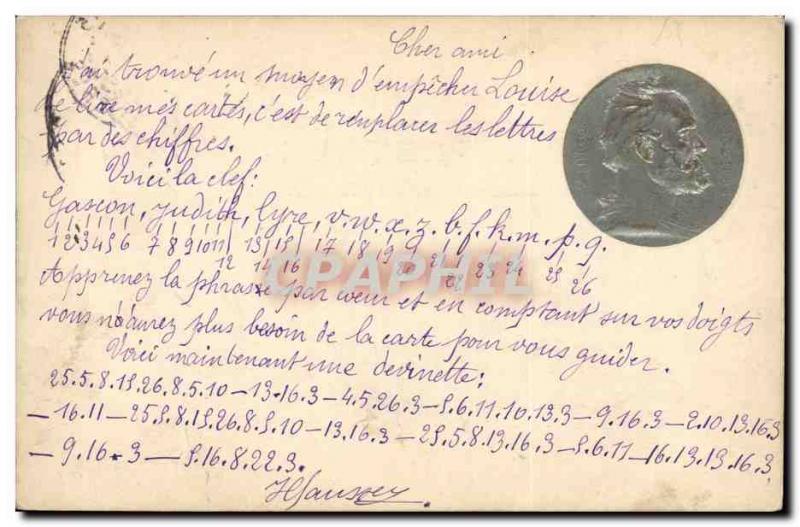 Cher ami
J'ai trouvé un moyen d'empêcher Louise
de lire mes cartes, c'est de remplacer les lettres
par des chiffres.
Voici la clef:
Gascon, judith, lyre, v. w. x. z. b. f. k. m. p. q.
1 2 3 4 5 6 7 8 9 10 11 13 15 17 18 19 21 23 24 25
12 14 16 20 22 26
CPAPHIL
Apprenez la phrase par coeur et en comptant sur vos doigts
vous n'aurez plus besoin de la carte pour vous guider.
Voici maintenant une devinette:
25.5.8.15.26.8.5.10 — 13.16.3 — 4.5.26.3 — 5.6.11.10.13.3 — 9.16.3 — 2.10.13.16.3
— 16.11 — 25.5.8.15.26.8.5.10 — 13.16.3 — 25.5.8.13.16.3 — 5.6.11 — 16.13.13.16.3
— 9.16.3 — 5.16.8.22.3.